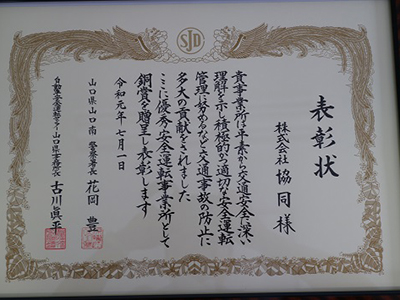 SJD
表彰状
株式会社 協同 様
貴事業所は平素から交通安全に深い
理解を示し積極的かつ適切な安全運転
管理に努めるなど交通事故の防止に
多大の貢献をされました
ここに優秀安全運転事業所として
銅賞を贈呈し表彰します
令和元年七月一日
山口県山口南警察署長 花岡 豊
自動車安全運転センター山口県事務所長 古川眞平